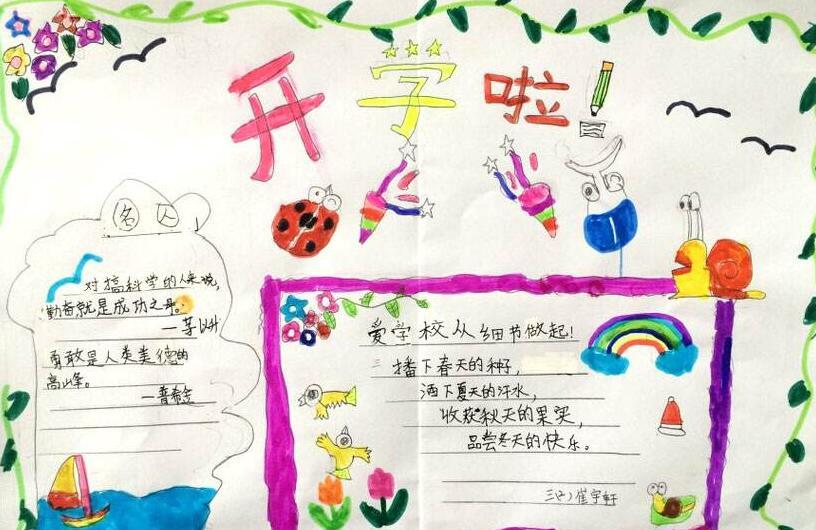 开学啦
名人
对搞科学的人来说,
勤奋就是成功之母。
—茅以升
勇敢是人类美德的
高峰。
—普希金
爱学校从细节做起!
播下春天的种子,
洒下夏天的汗水,
收获秋天的果实,
品尝冬天的快乐。
三(2)崔宇轩